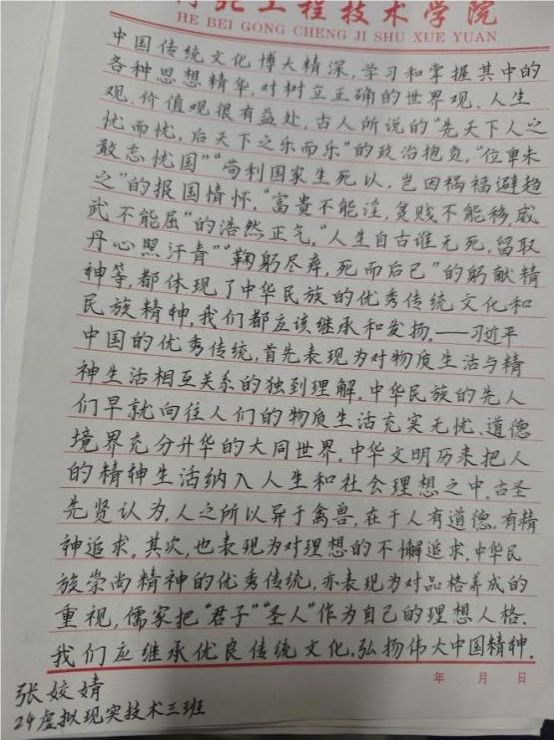 河北工程技术学院
HE BEI GONG CHENG JI SHU XUE YUAN
中国传统文化博大精深,学习和掌握其中的
各种思想精华,对树立正确的世界观、人生
观、价值观很有益处,古人所说的“先天下人之
忧而忧,后天下之乐而乐”的政治抱负,“位卑未
敢忘忧国”“苟利国家生死以,岂因祸福避趋
之”的报国情怀,“富贵不能淫,贫贱不能移,威
武不能屈”的浩然正气,“人生自古谁无死,留取
丹心照汗青”“鞠躬尽瘁,死而后已”的躬献精
神等,都体现了中华民族的优秀传统文化和
民族精神,我们都应该继承和发扬,——习近平
中国的优秀传统,首先表现为对物质生活与精
神生活相互关系的独到理解,中华民族的先人
们早就向往人们的物质生活充实无忧、道德
境界充分升华的大同世界,中华文明历来把人
的精神生活纳入人生和社会理想之中,古圣
先贤认为,人之所以异于禽兽,在于人有道德,有精
神追求,其次,也表现为对理想的不懈追求,中华民
族崇尚精神的优秀传统,亦表现为对品格养成的
重视,儒家把“君子”“圣人”作为自己的理想人格.
我们应继承优良传统文化,弘扬伟大中国精神.
年 月 日
张姣婧
24虚拟现实技术三班